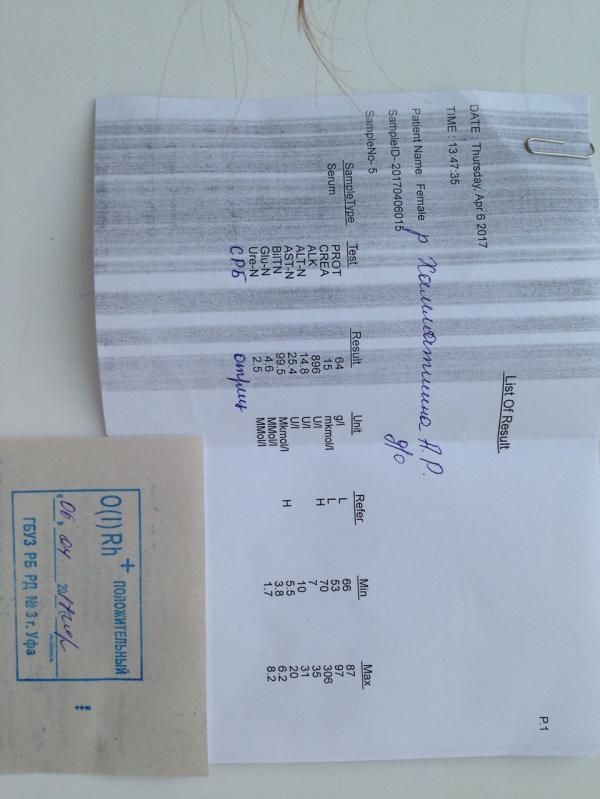 P.1
List Of Result
DATE : Thursday, Apr 6 2017
TIME : 13:47:35
Patient Name: Female р А.Р.
д/о
SampleID- 20170406015
SampleNo- 5
SampleType Test Result Unit Refer Min Max
Serum PROT 64 g/l L 66 87
CREA 15 mkmol/l L 53 97
ALK 896 U/l H 70 306
ALT-N 14.8 U/l 7 35
AST-N 25.4 U/l 10 31
BilTN 99.5 Mkmol/l H 5.5 20
Glu-N 4.6 MMol/l 3.8 6.2
Ure-N 2.5 MMol/l 1.7 8.2
СРБ отриц
O(I)Rh+ положительный !
06, 04 2017
ГБУЗ РБ РД №3 г. Уфа